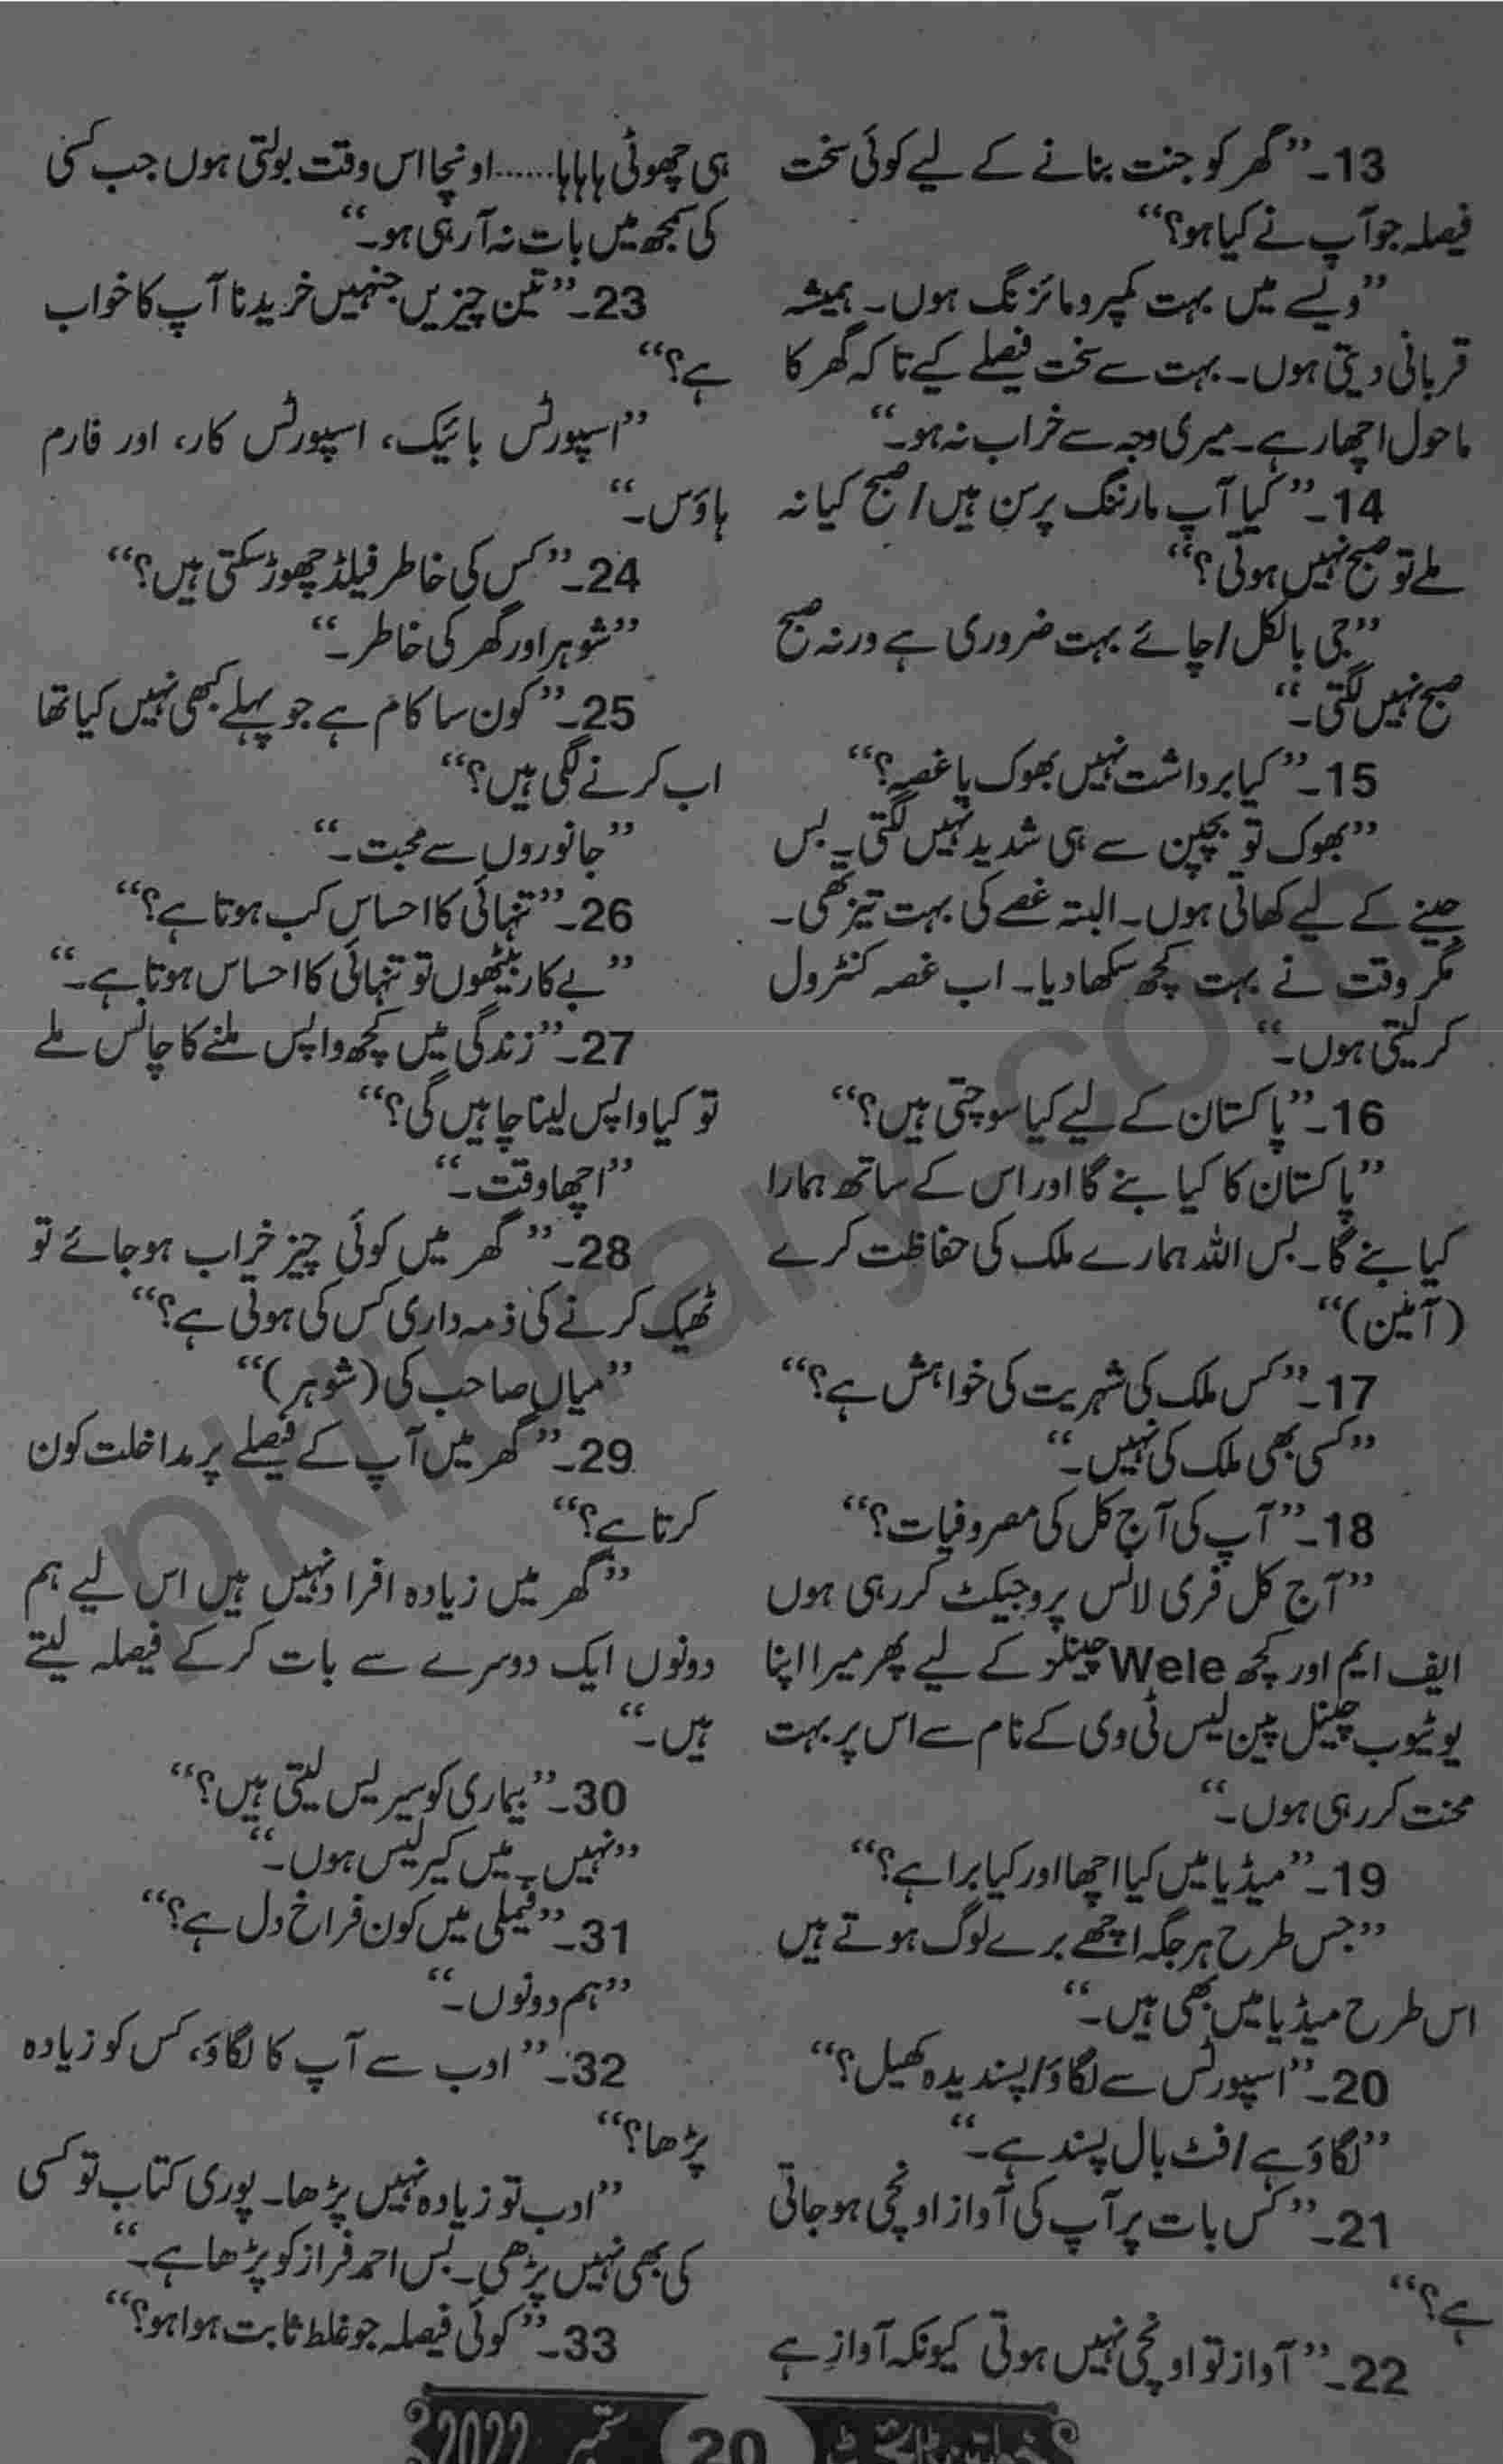 13۔’’گھر کو جنت بنانے کے لیے کوئی سخت
فیصلہ جو آپ نے کیا ہو؟‘‘
’’ویسے میں بہت کمپرومائزنگ ہوں۔ ہمیشہ
قربانی دیتی ہوں۔ بہت سے سخت فیصلے کیے تاکہ گھر کا
ماحول اچھا رہے۔ میری وجہ سے خراب نہ ہو۔‘‘
14۔’’کیا آپ مارننگ پرسن ہیں/صبح کیا نہ
ملے تو صبح نہیں ہوتی؟‘‘
’’جی بالکل/چائے بہت ضروری ہے ورنہ صبح
صبح نہیں لگتی۔‘‘
15۔’’کیا برداشت نہیں بھوک یا غصہ؟‘‘
’’بھوک تو بچپن سے ہی شدید نہیں لگتی۔ بس
جینے کے لیے کھاتی ہوں۔ البتہ غصے کی بہت تیز تھی۔
مگر وقت نے بہت کچھ سکھا دیا۔ اب غصہ کنٹرول
کر لیتی ہوں۔‘‘
16۔’’پاکستان کے لیے کیا سوچتی ہیں؟‘‘
’’پاکستان کا کیا بنے گا اور اس کے ساتھ ہمارا
کیا بنے گا۔ بس اللہ ہمارے ملک کی حفاظت کرے
(آمین)‘‘
17۔’’کس ملک کی شہریت کی خواہش ہے؟‘‘
’’کسی بھی ملک کی نہیں۔‘‘
18۔’’آپ کی آج کل کی مصروفیات؟‘‘
’’آج کل فری لانس پروجیکٹ کر رہی ہوں
ایف ایم اور کچھ Wele چینلز کے لیے پھر میرا اپنا
یوٹیوب چینل پین لیس ٹی وی کے نام سے اس پر بہت
محنت کر رہی ہوں۔‘‘
19۔’’میڈیا میں کیا اچھا اور کیا برا ہے؟‘‘
’’جس طرح ہر جگہ اچھے برے لوگ ہوتے ہیں
اس طرح میڈیا میں بھی ہیں۔‘‘
20۔’’اسپورٹس سے لگاؤ/پسندیدہ کھیل؟‘‘
’’لگاؤ ہے/فٹ بال پسند ہے۔‘‘
21۔’’کس بات پر آپ کی آواز اونچی ہو جاتی
ہے؟‘‘
22۔’’آواز تو اونچی نہیں ہوتی کیونکہ آواز ہے
ہی چھوٹی ہاہاہا......اونچا اس وقت بولتی ہوں جب کسی
کی سمجھ میں بات نہ آ رہی ہو۔‘‘
23۔’’تین چیزیں جنہیں خریدنا آپ کا خواب
ہے؟‘‘
’’اسپورٹس بائیک، اسپورٹس کار، اور فارم
ہاؤس۔‘‘
24۔’’کس کی خاطر فیلڈ چھوڑ سکتی ہیں؟‘‘
’’شوہر اور گھر کی خاطر۔‘‘
25۔’’کون سا کام ہے جو پہلے کبھی نہیں کیا تھا
اب کرنے لگی ہیں؟‘‘
’’جانوروں سے محبت۔‘‘
26۔’’تنہائی کا احساس کب ہوتا ہے؟‘‘
’’بے کار بیٹھوں تو تنہائی کا احساس ہوتا ہے۔‘‘
27۔’’زندگی میں کچھ واپس ملنے کا چانس ملے
تو کیا واپس لینا چاہیں گی؟‘‘
’’اچھا وقت۔‘‘
28۔’’گھر میں کوئی چیز خراب ہو جائے تو
ٹھیک کرنے کی ذمہ داری کس کی ہوتی ہے؟‘‘
’’میاں صاحب کی (شوہر)‘‘
29۔’’گھر میں آپ کے فیصلے پر مداخلت کون
کرتا ہے؟‘‘
’’گھر میں زیادہ افراد نہیں ہیں اس لیے ہم
دونوں ایک دوسرے سے بات کر کے فیصلہ لیتے
ہیں۔‘‘
30۔’’بیماری کو سیریس لیتی ہیں؟‘‘
’’نہیں۔ میں کیرلیس ہوں۔‘‘
31۔’’فیملی میں کون فراخ دل ہے؟‘‘
’’ہم دونوں۔‘‘
32۔’’ادب سے آپ کا لگاؤ، کس کو زیادہ
پڑھا؟‘‘
’’ادب تو زیادہ نہیں پڑھا۔ پوری کتاب تو کسی
کی بھی نہیں پڑھی۔ بس احمد فراز کو پڑھا ہے۔‘‘
33۔’’کوئی فیصلہ جو غلط ثابت ہوا ہو؟‘‘
خواتین ڈائجسٹ 20 ستمبر 2022
pklibrary.com